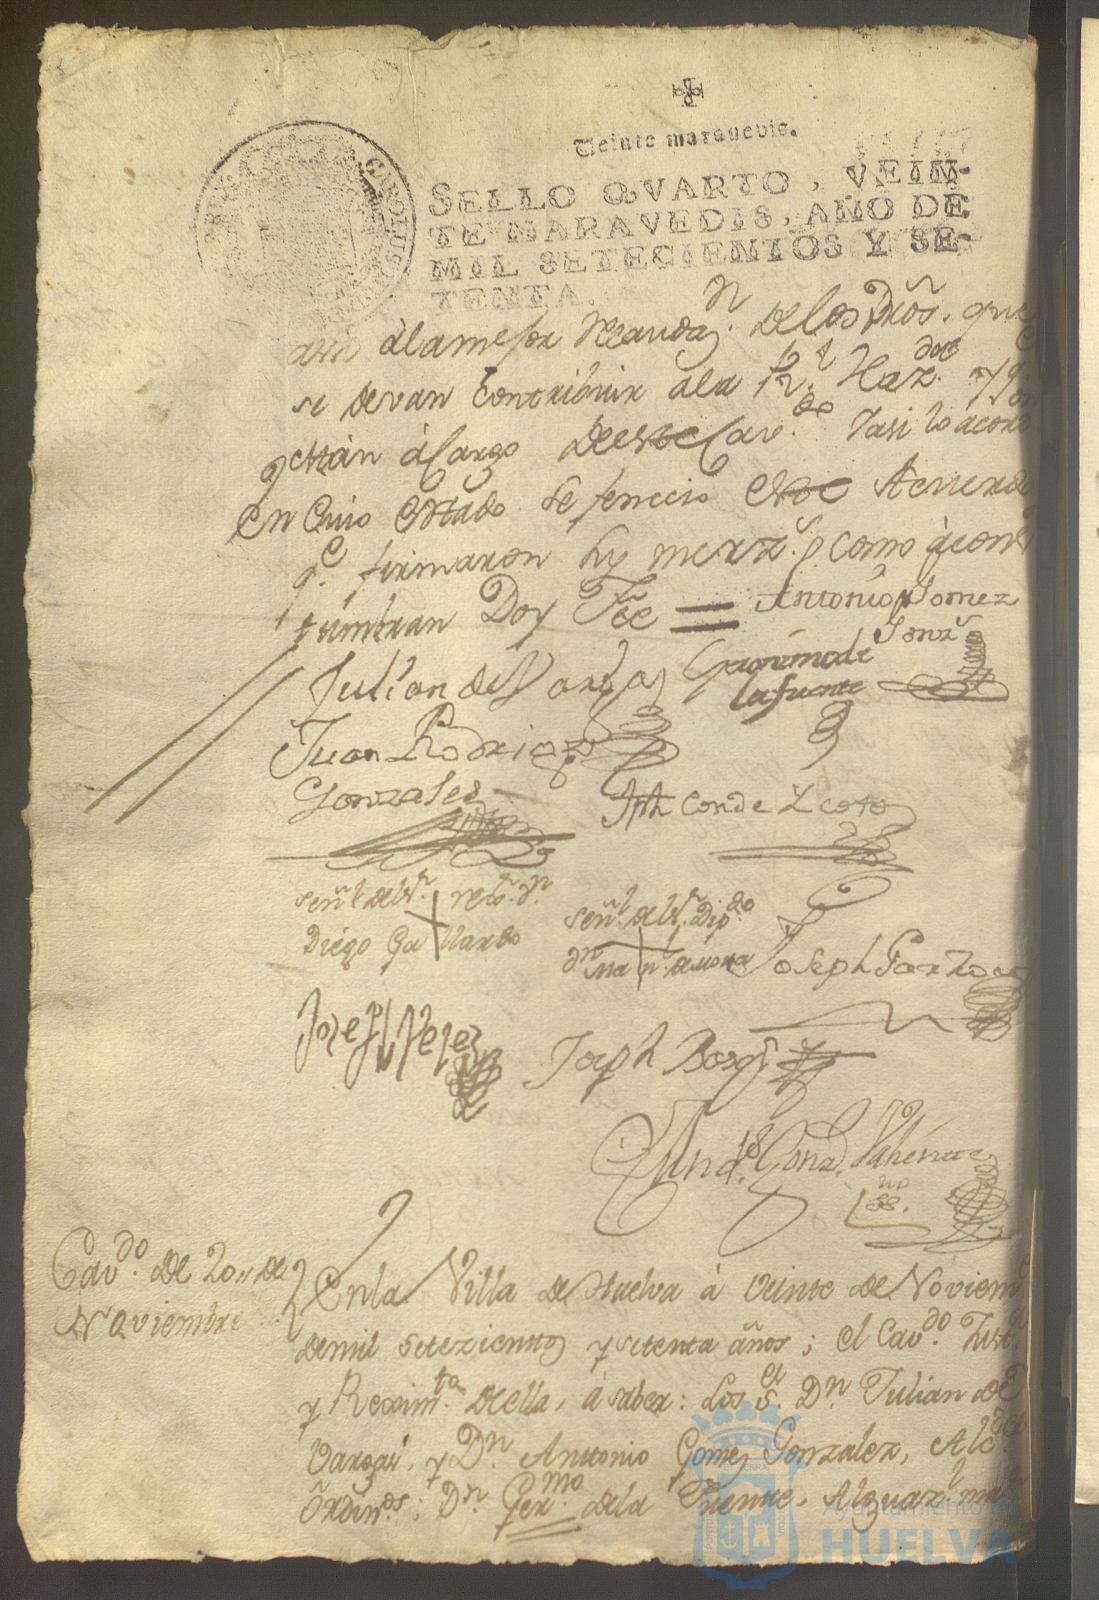 Veinte maravedis.
SELLO QVARTO, VEIN-
TE MARAVEDIS, AÑO DE
MIL SETECIENTOS Y SE-
TENTA.
CAROLUS
à la mejor Recaudazn. de los Dros. que
se devan contribuir a la Rl. Hazda. y
están à Cargo de este Cavdo. Y asi lo acor
En Cuio Estado se fenecio este Acuerdo
qe. firmaron sus mercds. como àcos
tumbran Doy Fee =
Antonio Gomez
Gonzs
Julian de Vargas
Geronimo de
la fuente
Juan Rodrigz
Gonzales
Jph Conde Y Coto
señl. del Sr. Dn.
Diego Gallardo
señl. del Sr. Dipdo.
Joseph Garzon
Josef Velez
Joseph Borg
Gonz. Valiente
Cavdo. de 20 „ de
Noviembre
En la Villa de Huelva à veinte de Noviem
de mil setezientos y setenta años; el Cavdo. Justa.
y Reximto. de ella, à saber: Los Ss. Dn. Julian de
Vargas, y Dn. Anttonio Gomez Gonzalez, Alcdes
Ordinos; Dn. Germo. de la Fuente, Alguazl. mar
Ayuntamiento de
HUELVA